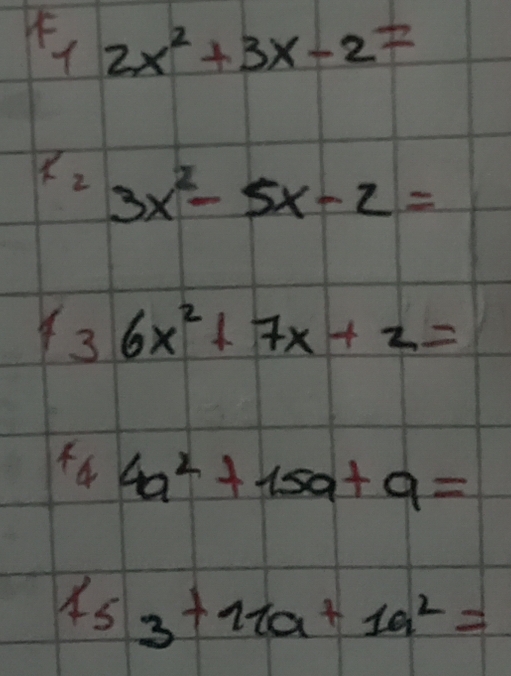 F1 2x² + 3x - 2 =
F2 3x² - 5x - 2 =
F3 6x² + 7x + 2 =
F4 4a² + 15a + 9 =
F5 3 + 11a + 1a² =